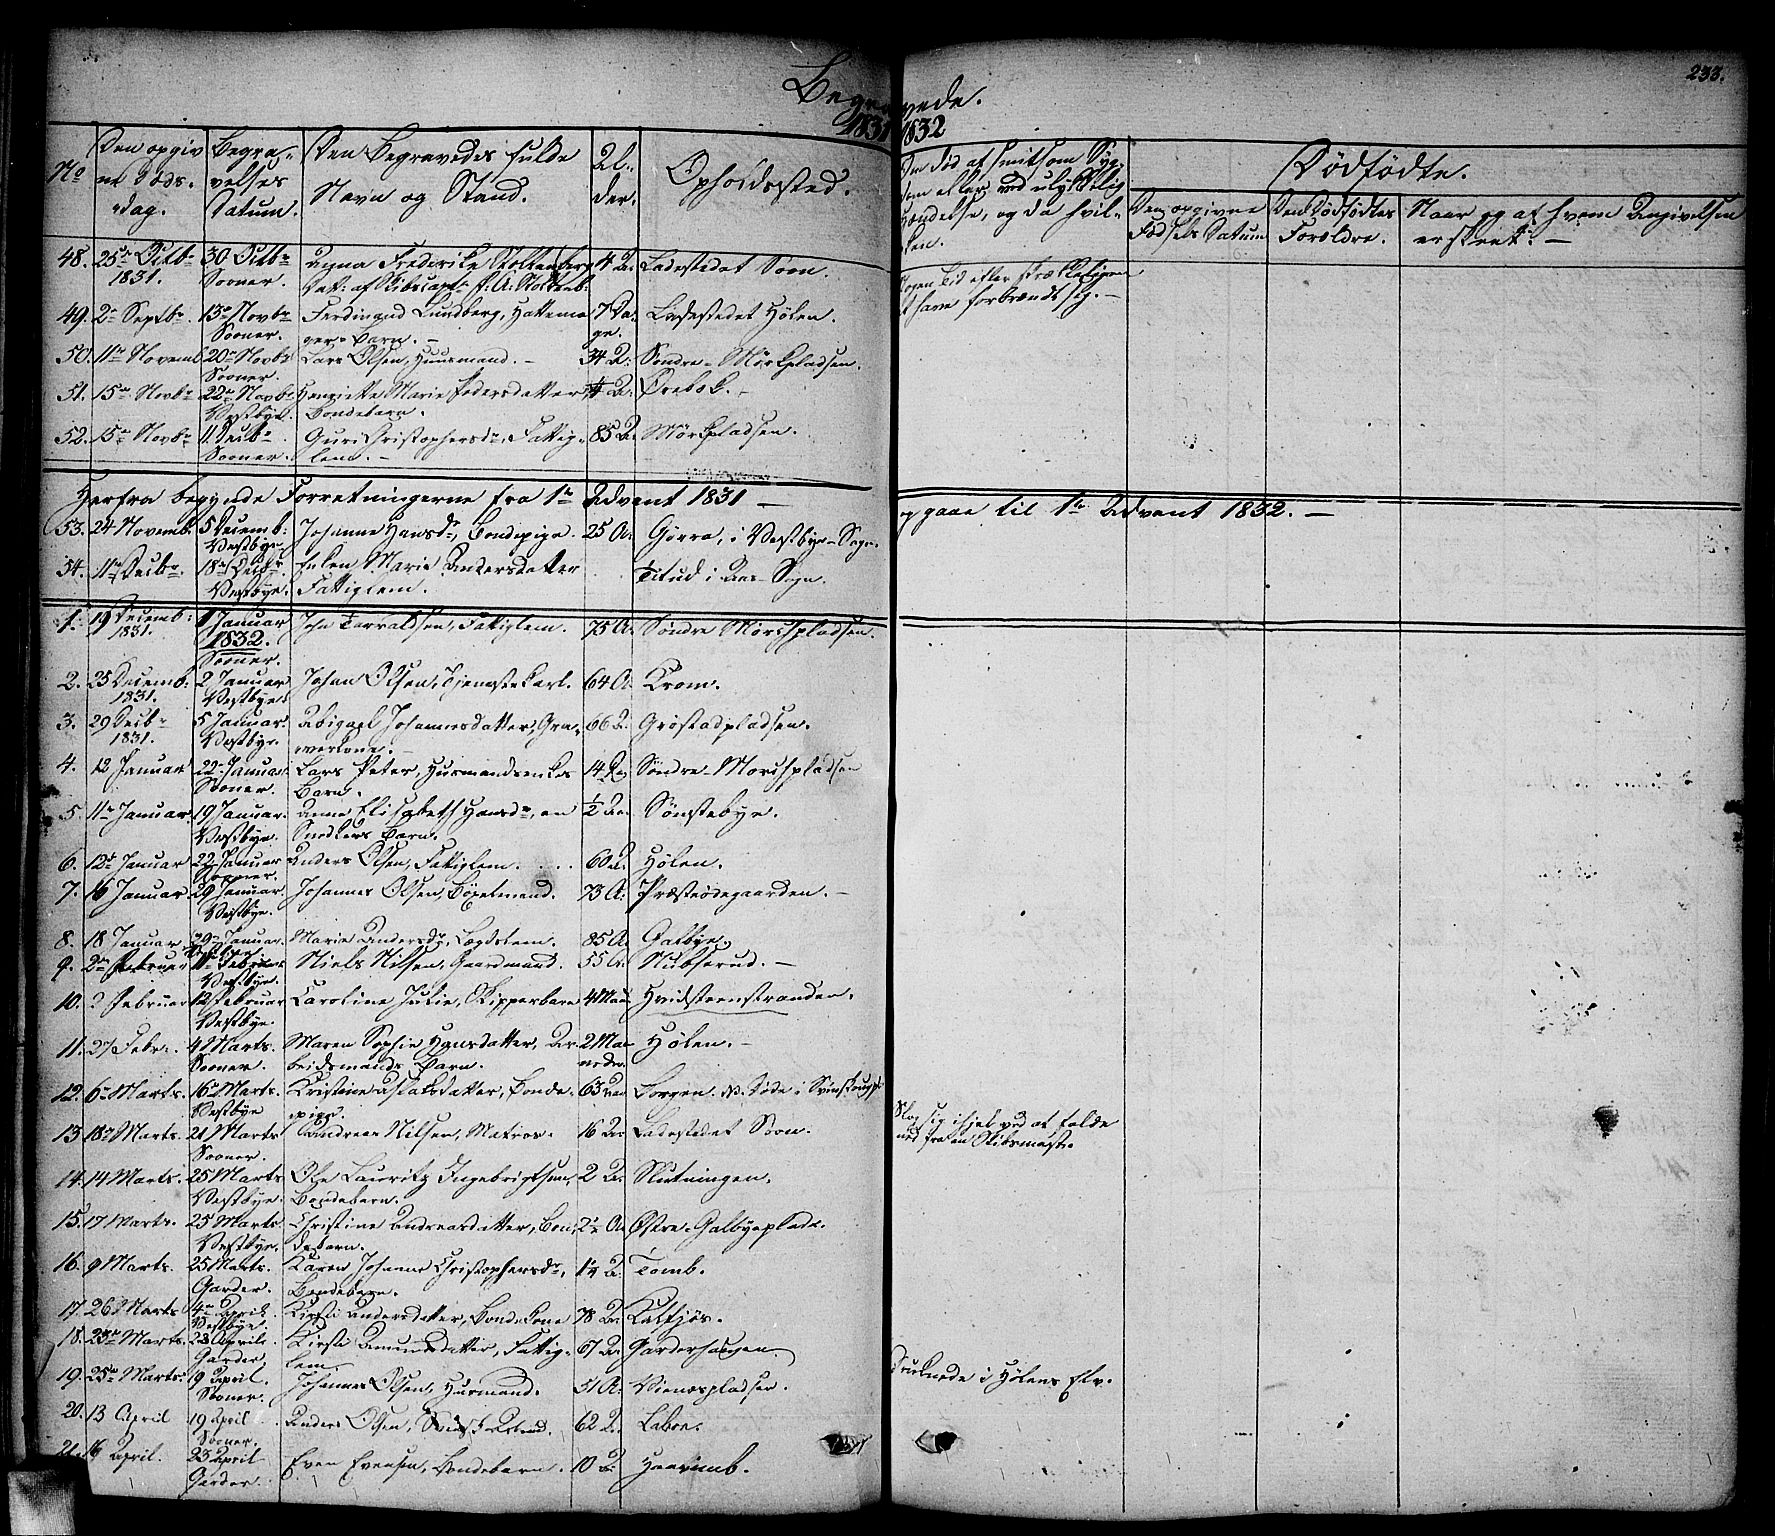 233.
Begravede.
1831 1832
No
Den opgivne Døds-dag.
Begravelses Datum.
Den Begravedes fulde Navn og Stand.
Alder.
Opholdssted.
Om død af smitsom Sygdom eller ved ulykkelig Hændelse, og da hvilken.
Dødfødte.
Den opgivne Fødsels Datum
Den Dødfødtes Forældre.
Naar og af hvem Angivelsen er skeet. —
48. 25de Octbr 1831. 30 Octbr Sooner. Fredrike Stoltenberg 4 A. Ladestedet Soon.
nogen Tid efter at have forbrændt sig. —
49. 2n Septbr. 13de Novbr Sooner. Ferdinand Lundberg, Hattemagers Barn. — 7 Dage. Ladestedet Hølen.
50. 11te Novemb. 20de Novbr Sooner. Lars Olsen, Huusmand. — 34 A. Søndre Mørkpladsen.
51. 15de Novbr 22de Novbr Vestbye. Henriette Marie Pedersdatter, Bondebarn. Ørebek. —
52. 15de Novbr 11 Decbr Sooner. Guri Christophersdr, Fattiglem. — 85 A. Mørkpladsen.
Herfra begynde Forretningerne fra 1te Advent 1831 —
og gaae til 1te Advent 1832. —
53. 24 Novemb. 5 Decemb: Vestbye. Johanne Hansdr, Bondepige. 25 A. Gjerra, i Vestbye Sogn.
54. 11te Decbr. 18de Decbr Vestbye. Helen Marie Andersdatter Fattiglem. Titud i Aas Sogn.
1. 19 Decemb: 1831. 1 Januar 1832. Sooner. John Torvaldsen, Fattiglem. 75 A. Søndre Morchpladsen.
2. 25 Decemb: 1831. 2 Januar Vestbye. Johan Olsen, Tjenestekarl. 64 A. Krom.
3. 29 Decbr 1831. 5 Januar. Vestbye. Abigael Johannesdatter, Graverkone. — 66 A. Grøstadpladsen.
4. 12 Januar 22 Januar Sooner. Lars Peter, Husmandsenkes Barn. 14 Søndre Morchpladsen
5. 11te Januar 19 Januar. Vestbye. Anne Elisabeth Hansdr, en Snedkers Barn. 1/2 A. Sønstebye.
6. 12te Januar 22 Januar Sooner. Anders Olsen, Fattiglem. 60 A. Hølen.
7. 16 Januar 29 Januar. Vestbye. Johannes Olsen, Bøxelmand. 73 A. Præstegaarden. —
8. 18 Januar 29 Januar. Marie Andersdr, Lægdslem. 85 A. Galbye.
9. 2den Februar 11te Februar Vestbye. Niels Nilsen, Gaardmand. 55 A. Nubserud. —
10. 2 Februar 12 Februar Vestbye. Caroline Julie, Skipperbarn 4 Maan. Hvidsteenstranden.
11. 27 Febr. 4 Marts. Sooner. Maren Sophie Hansdatter, Arbeidsmands Barn. 2 Maaneder. Hølen. —
12. 6te Marts. 16 Marts. Vestbye Kristine Aslaksdatter, Bondepige. 63 Aar. Borgen. NB. Døde i
13. 18de Marts. 21 Marts Sooner. Andreas Nilsen, Matros. 16 A. Ladestedet Soon.
Slog sig ihjel ved at falde ned fra en Skibsmast.
14. 14 Marts. 25 Marts Vestbye. Ole Lauritz Ingebrigtsen, Bondebarn. 2 A. Slutningen.
15. 17 Marts. 25 Marts Vestbye. Christine Andreasdatter, Bondebarn. 2 1/2 A. Østre Galbyeplads.
16. 9 Marts. 25 Marts. Garder. Karen Johanne Christophersdr, Bondebarn. 1 1/2 A. Tomb.
17. 26 Marts 4de April Vestbye. Kirsti Andersdatter, Bondekone 78 A. Kaltsjøs.
18. 23de Marts. 23 April. Garder. Kirsti Amundsdatter, Fattiglem. 67 A. Garderhaugen.
19. 25de Marts. 9 April. Sooner. Johannes Olsen, Husmand. 51 A. Vienespladsen.
Druknede i Hølens Elv.
20. 13 April 19 April Sooner. Anders Olsen, 62 A. Laboe.
21. 16 April. 23 April Garder. Even Evensen, Bondebarn. 10 A. Haarumb.